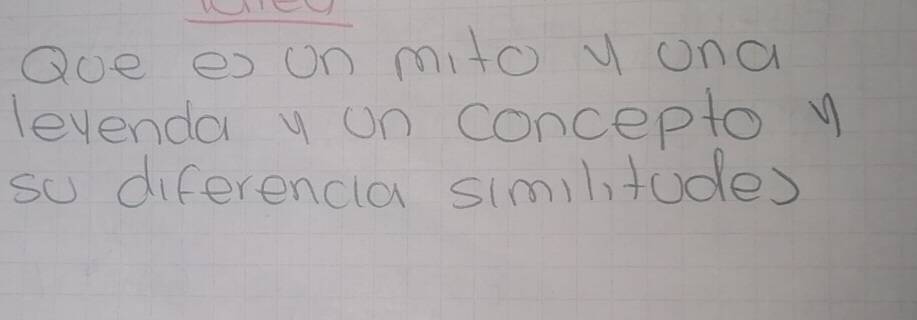 Que es un mito y una
leyenda y un concepto y
su diferencia similitudes